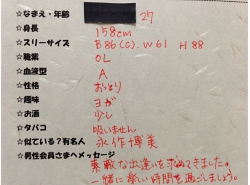 ☆なまえ・年齢 27
☆身長 158cm
☆スリーサイズ B86(C).W61 H88
☆職業 OL
☆血液型 A
☆性格 おっとり
☆趣味 ヨガ
☆お酒 少し
☆タバコ 吸いません
☆似ている?有名人 永作博美
☆男性会員さまへメッセージ
素敵な出逢いを求めてきました。
一緒に楽しい時間を過ごしましょう。